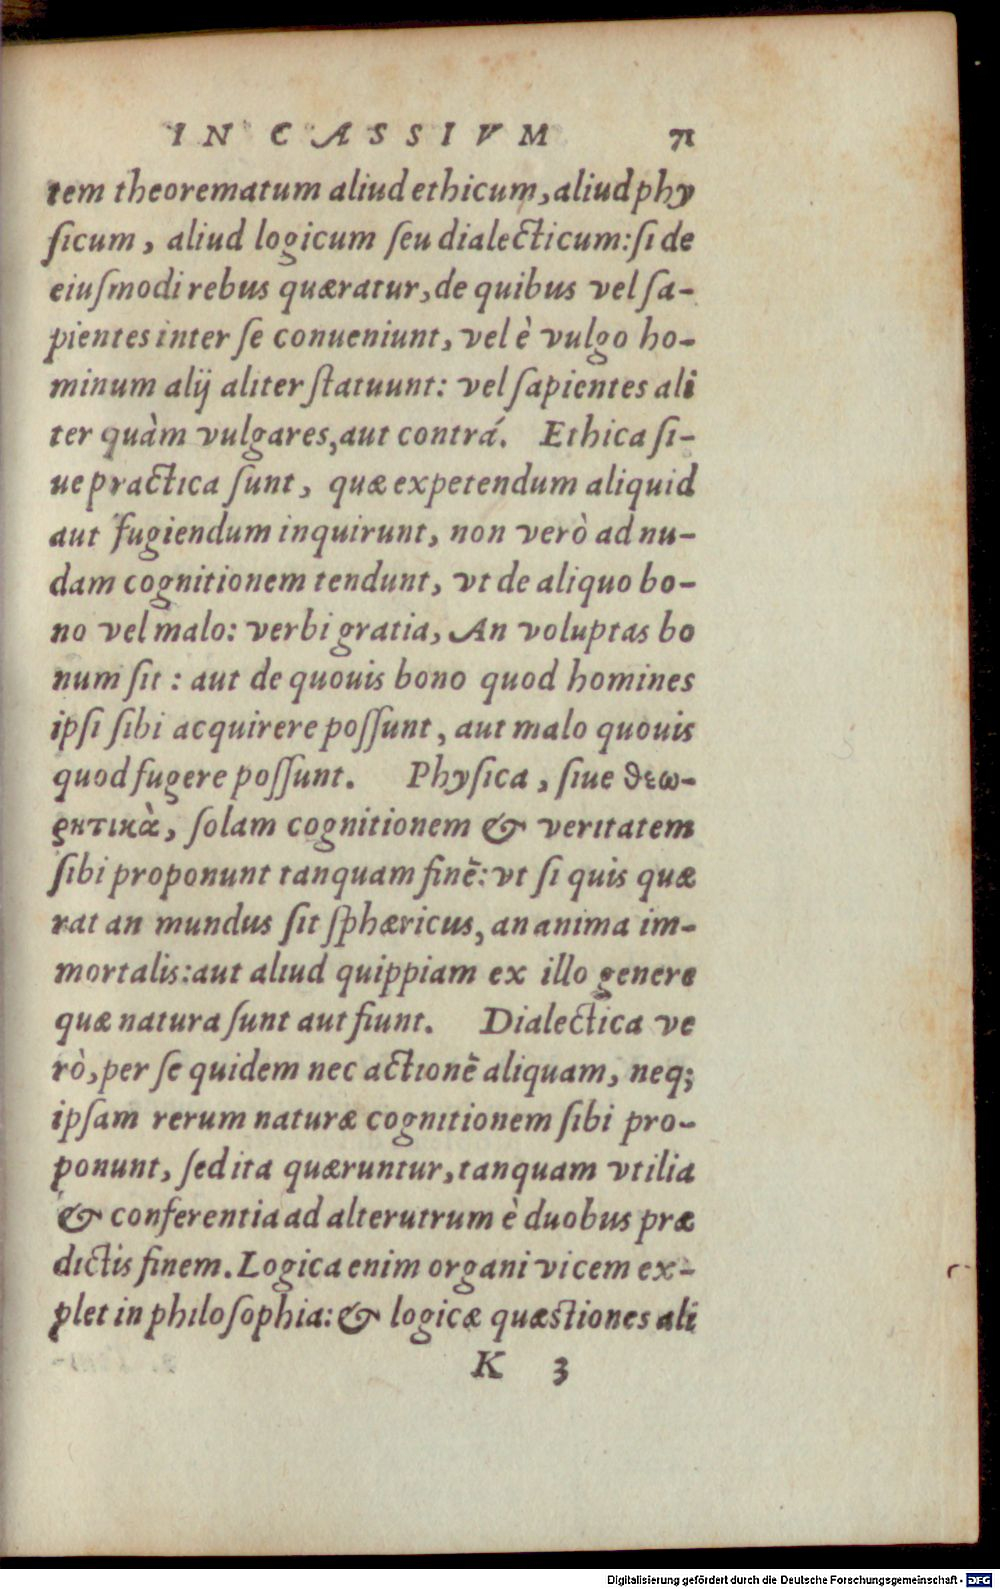 IN CASSIVM 71
tem theorematum aliud ethicum, aliud phy
ſicum, aliud logicum ſeu dialecticum: ſi de
eiuſmodi rebus quæratur, de quibus vel ſa-
pientes inter ſe conueniunt, vel è vulgo ho-
minum alij aliter ſtatuunt: vel ſapientes ali
ter quàm vulgares, aut contrá. Ethica ſi-
ue practica ſunt, quæ expetendum aliquid
aut fugiendum inquirunt, non verò ad nu-
dam cognitionem tendunt, vt de aliquo bo-
no vel malo: verbi gratia, An voluptas bo
num ſit: aut de quouis bono quod homines
ipſi ſibi acquirere poſſunt, aut malo quouis
quod fugere poſſunt. Phyſica, ſiue θεω-
ρητικὰ, ſolam cognitionem & veritatem
ſibi proponunt tanquam finē: vt ſi quis quæ
rat an mundus ſit ſphæricus, an anima im-
mortalis: aut aliud quippiam ex illo genere
quæ natura ſunt aut fiunt. Dialectica ve
rò, per ſe quidem nec actionē aliquam, neq;
ipſam rerum naturæ cognitionem ſibi pro-
ponunt, ſed ita quæruntur, tanquam vtilia
& conferentia ad alterutrum è duobus præ
dictis finem. Logica enim organi vicem ex-
plet in philoſophia: & logicæ quæſtiones ali
K 3
Digitalisierung gefördert durch die Deutsche Forschungsgemeinschaft - DFG